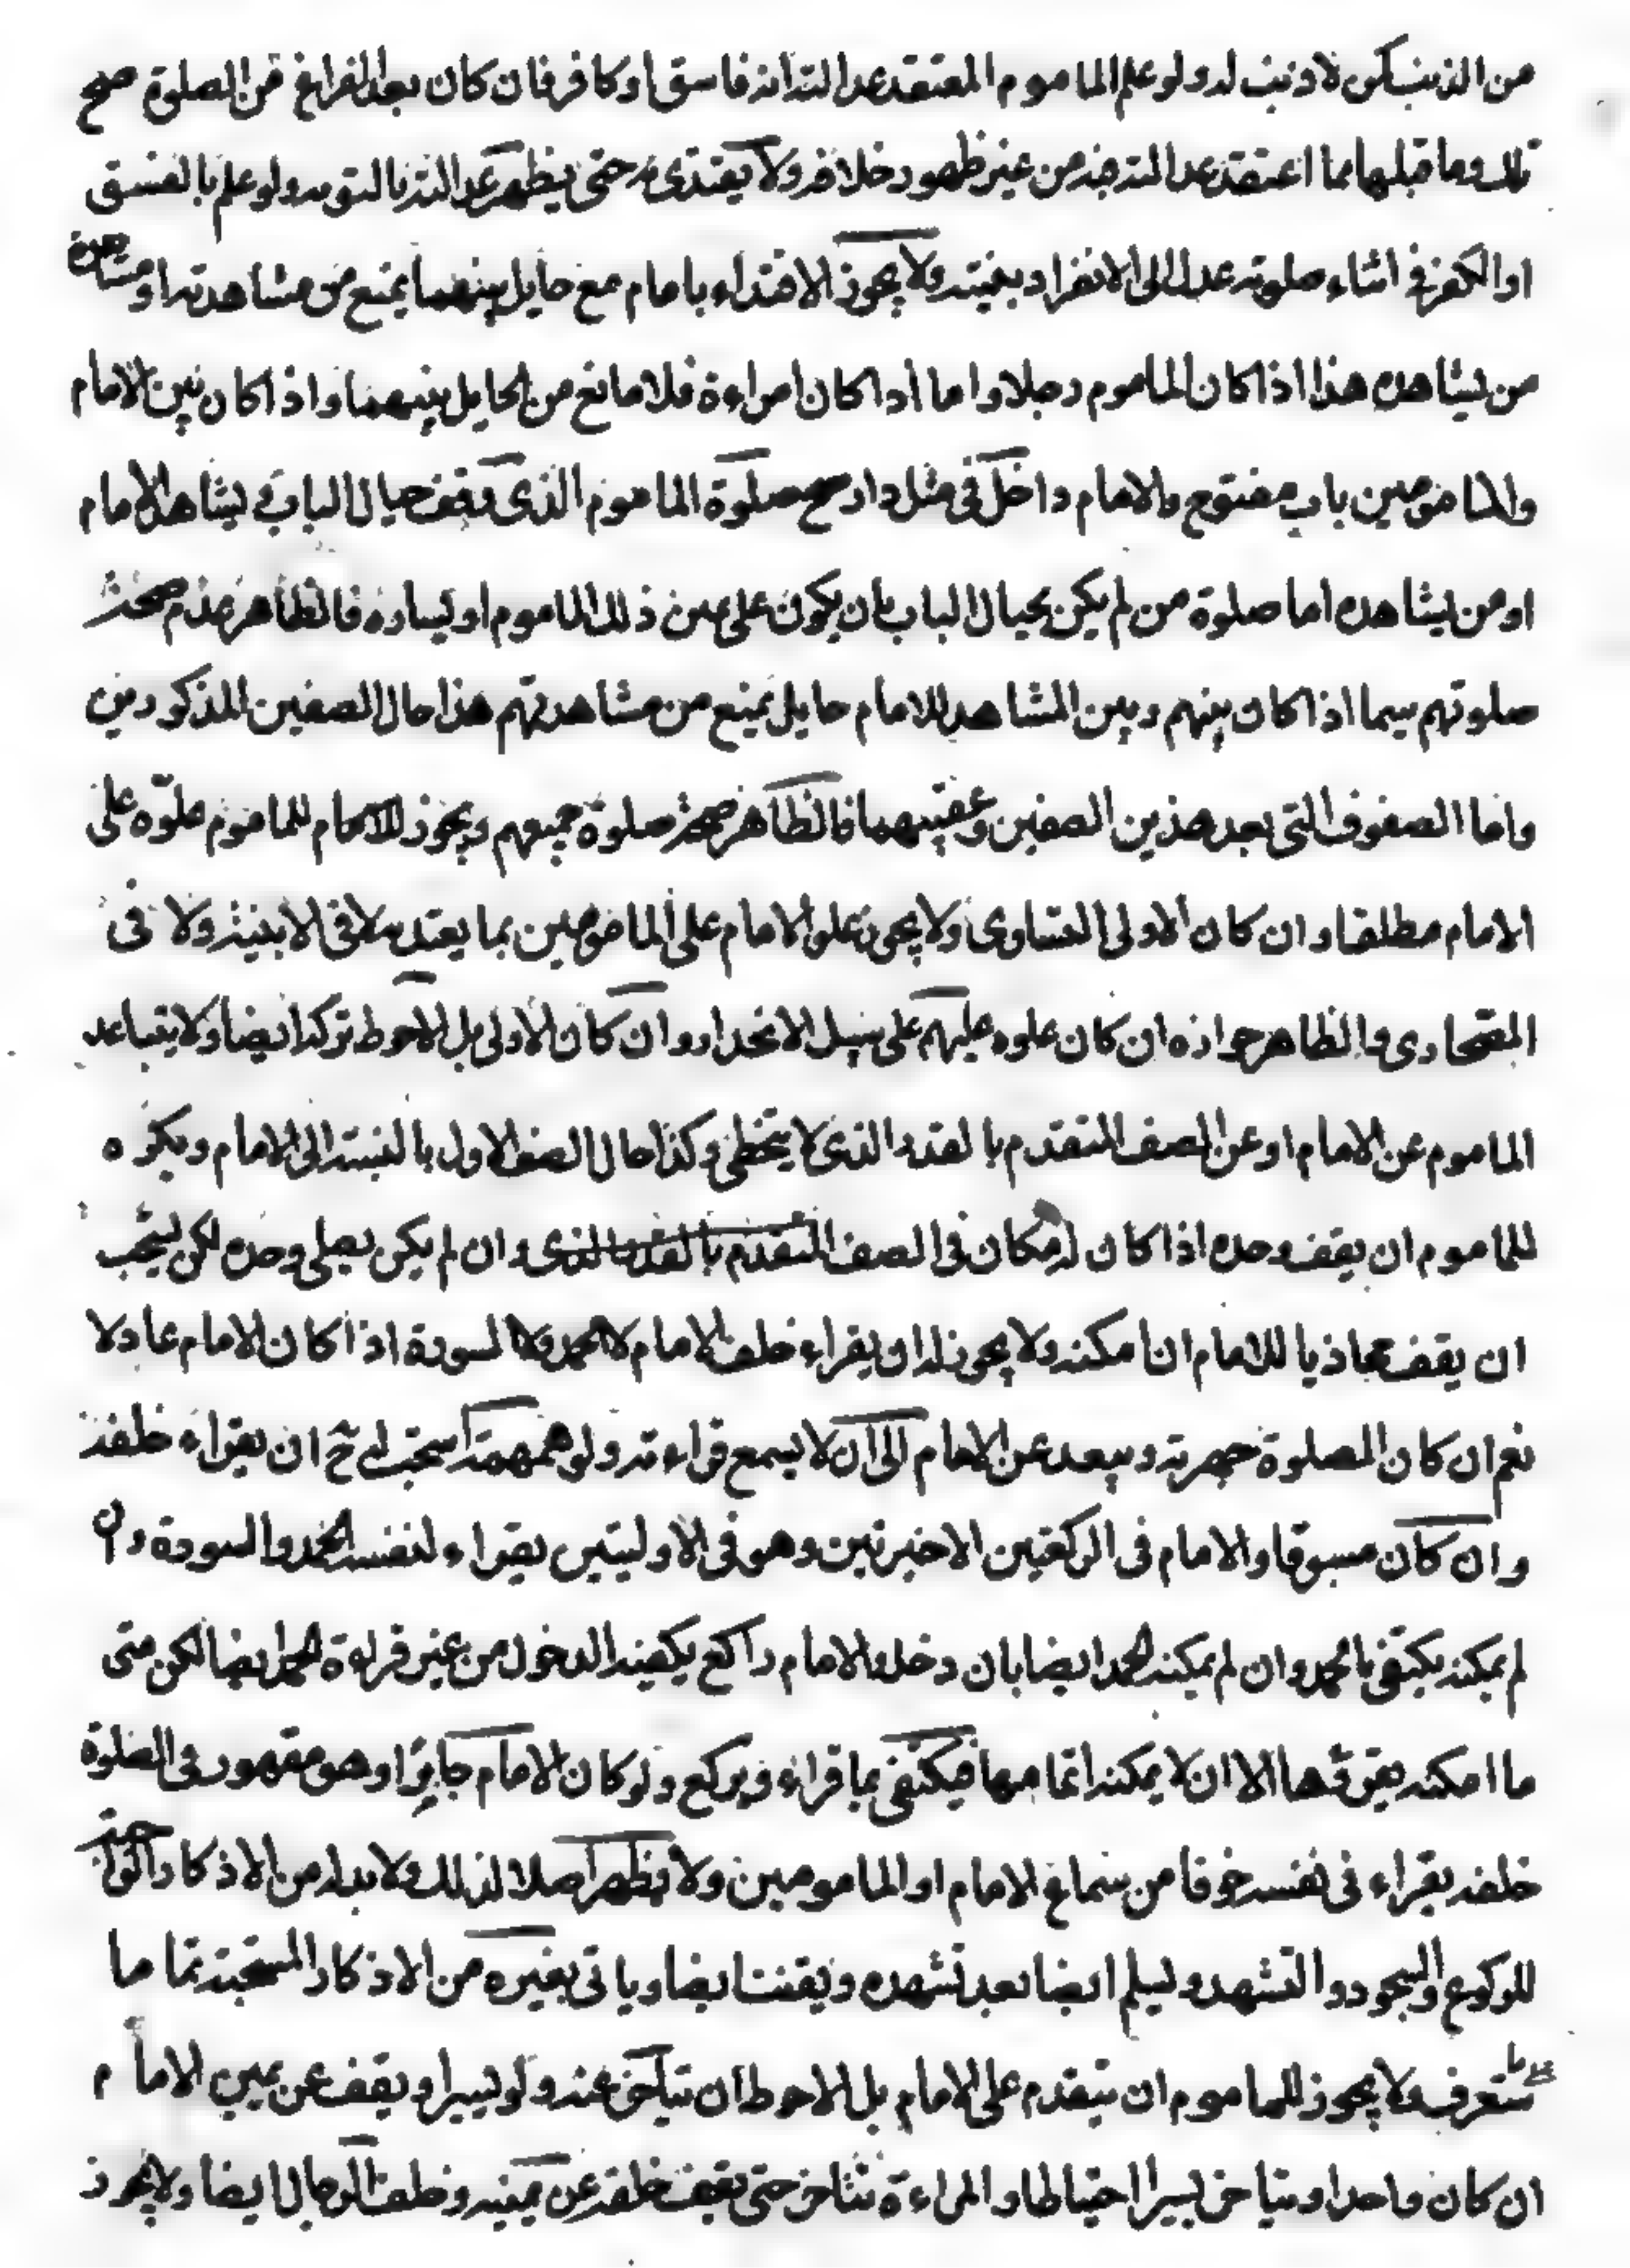 من الذنب كمن لا ذنب له ولو علم المأموم المعتقد عدالته انه فاسق او كافر فان كان بعد الفراغ من الصلوة صح
تلك وما قبلها مما اعتقد عدالته فيه من غير ظهور خلافه ولا يقتدى به حتى يظهر عدالته بالتوبه ولو علم بالفسق
او الكفر في اثناء صلوته عدل الى الانفراد بنيته ولا يجوز الاقتداء بامام مع حايل بينهما يمنع من مشاهدته او مشاهدة
من يشاهده هذا اذا كان المأموم رجلا واما اذا كان امراءة فلا مانع من الحايل بينهما واذا كان بين الامام
والمامومين باب مفتوح والامام داخل في مثل دار صح صلوة الماموم الذى وقف حيال الباب و يشاهد الامام
او من يشاهده اما صلوة من لم يكن بحيال الباب بان يكون على يمين ذلك الماموم او يساره فالظاهر عدم صحة
صلوتهم سيما اذا كان بينهم وبين المشاهد للامام حايل يمنع من مشاهدتهم هذا حال الصفين المذكورين
واما الصفوف التى بعد هذين الصفين وعقيبهما فالظاهر صحة صلوة جميعهم ويجوز للماموم علوه على
الامام مطلقا وان كان الاولى التساوى ولا يجوز علو الامام على المامومين بما يعتد به لا فى الابنية ولا فى
الصحارى والظاهر جوازه ان كان علوه عليهم على سبيل الانحدار وان كان الاولى بل الاحوط تركه ايضا ولا يتباعد
الماموم عن الامام او عن الصف المتقدم بالقدر الذى لا يتخطى وكذا حال الصف الاول بالنسبة الى الامام ويكره
للماموم ان يقف وحده اذا كان له مكان فى الصف المتقدم بالقدر الذى وان لم يكن يصلى وحده لكن يستحب
ان يقف محاذيا للامام ان امكنه ولا يجوز له ان يقراء خلف الامام لا الحمد ولا السورة اذا كان الامام عادلا
نعم ان كان الصلوة جهرية ويبعد عن الامام الى ان لا يسمع قراءته ولو همهمة استحب له ح ان يقراء خلفه
وان كان مسبوقا والامام فى الركعتين الاخيرتين وهو فى الاوليتين يقراء لنفسه الحمد والسورة وان
لم يمكنه يكتفى بالحمد وان لم يمكنه الحمد ايضا بان دخل والامام راكع يكفيه الدخول من غير قراءة الحمد ايضا لكن متى
ما امكنه يقرئها الا ان لا يمكنه اتمامها فيكتفى بما قراء ويركع ولو كان الامام جايرا وهو مقهور فى الصلوة
خلفه يقراء فى نفسه خوفا من سماع الامام او المامومين ولا يظهر اصلا لذلك ولا بد له من الاذكار الواجبة
للركوع والسجود والتشهد وليسلم ايضا بعد تشهده ويقنت ايضا وياتى بغيره من الاذكار المستحبة تماما
على ما ستعرف ولا يجوز للماموم ان يتقدم على الامام بل الاحوط ان يتاخر عنه ولو يسيرا ويقف عن يمين الامام
ان كان واحدا ويتاخر يسيرا احتياطا والمراءة تتاخر حتى تقف خلفه عن يمينه وخلف الرجال ايضا ولا يجوز